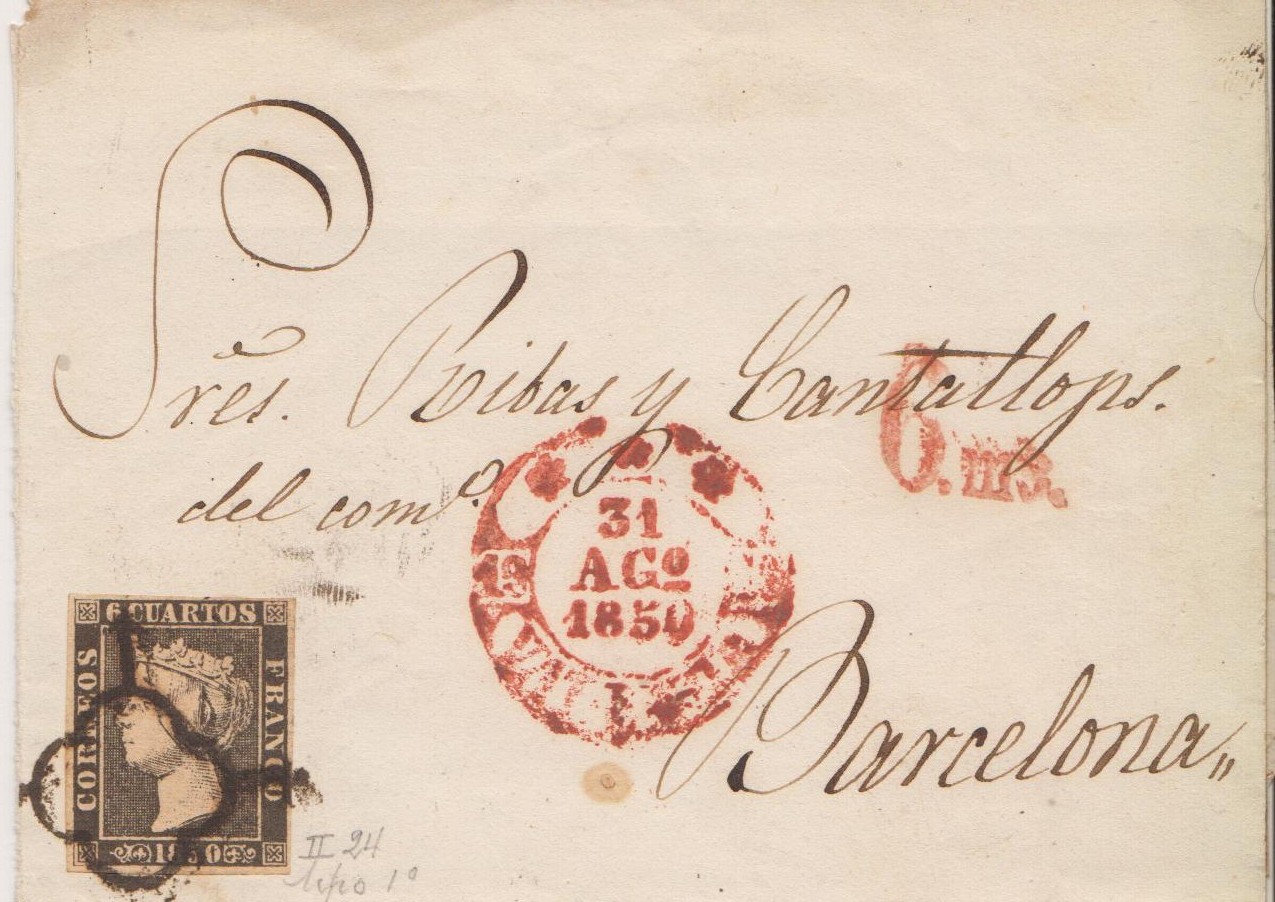 Sres. Ribas y Cantallops.
del como.
6. ms.
31
AGO
1850
Barcelona
6 CUARTOS
CORREOS
FRANCO
1850
II 24
tipo 1º